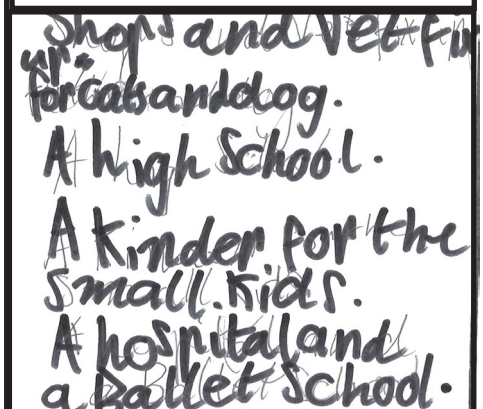 Shops and Vet fix
up.
for cats and dog.
A high School.
A kinder for the
small. kids.
A hospital and
a Ballet School.